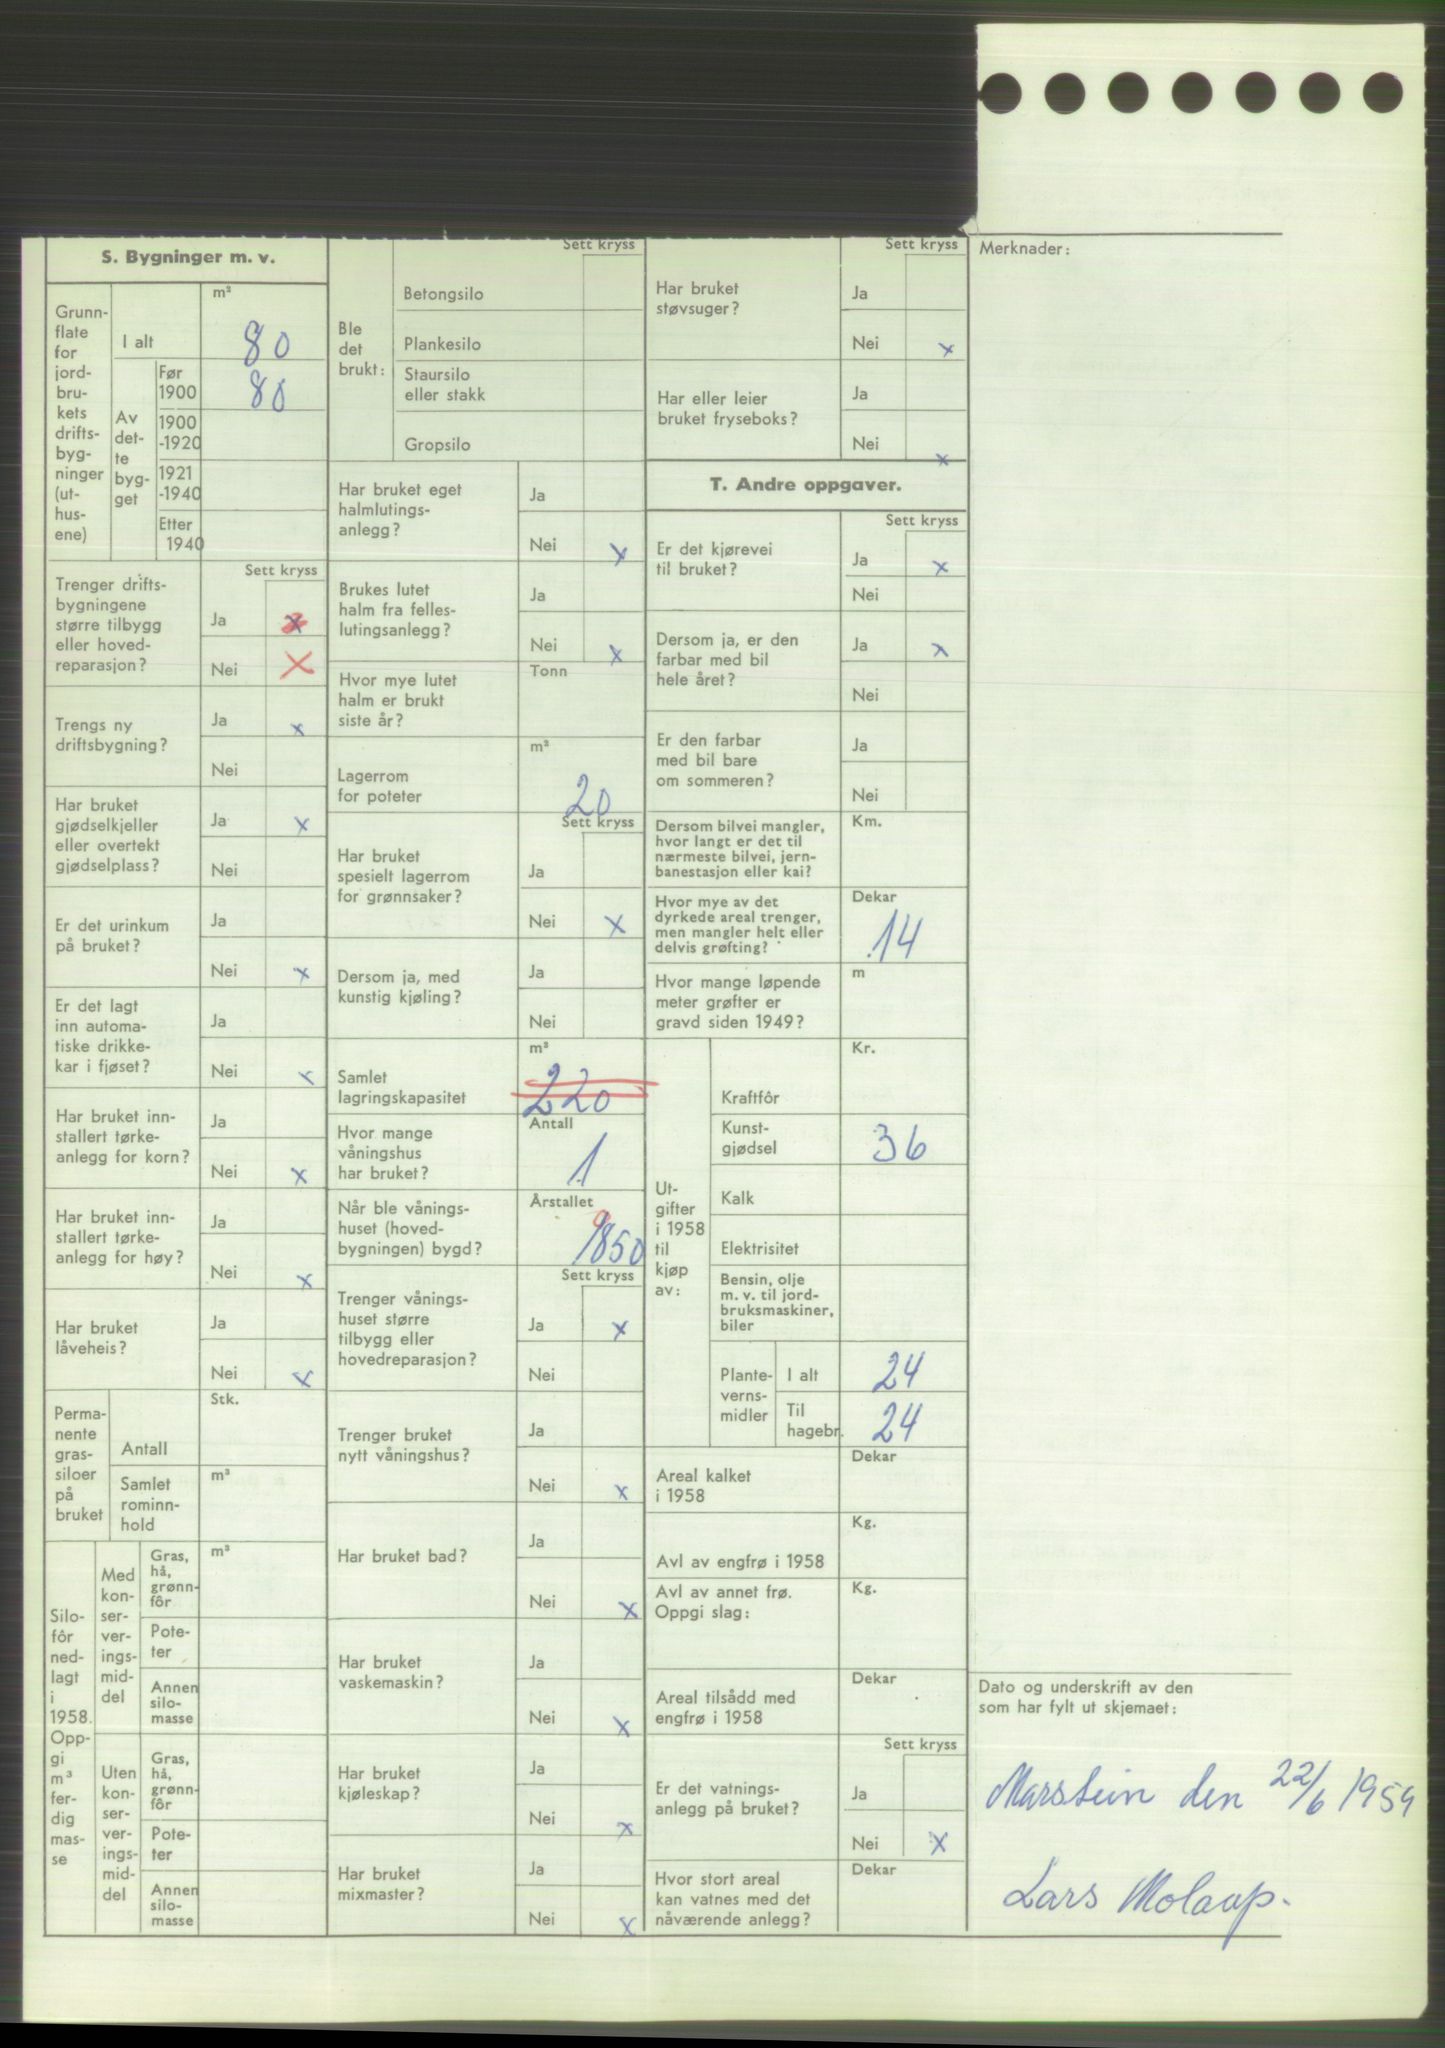 S. Bygninger m. v.
Grunn-
flate
for
jord-
bru-
kets
drifts-
byg-
ninger
(ut-
hus-
ene)
I alt
m²
80
Av
det-
te
byg-
get
Før
1900
80
1900
-1920
1921
-1940
Etter
1940
Sett kryss
Trenger drifts-
bygningene
større tilbygg
eller hoved-
reparasjon?
Ja x
Nei X
Trengs ny
driftsbygning?
Ja x
Nei
Har bruket
gjødselkjeller
eller overtekt
gjødselplass?
Ja x
Nei
Er det urinkum
på bruket?
Ja
Nei x
Er det lagt
inn automa-
tiske drikke-
kar i fjøset?
Ja
Nei x
Har bruket inn-
stallert tørke-
anlegg for korn?
Ja
Nei x
Har bruket inn-
stallert tørke-
anlegg for høy?
Ja
Nei x
Har bruket
låveheis?
Ja
Nei x
Perma-
nente
gras-
siloer
på
bruket
Antall
Stk.
Samlet
rominn-
hold
m³
Silo-
fôr
ned-
lagt
i
1958.
Opp-
gi
m³
fer-
dig
mas-
se
Med
kon-
ser-
ver-
ings-
mid-
del
m³
Gras,
hå,
grønn-
fôr
Pote-
ter
Annen
silo-
masse
Uten
kon-
ser-
ver-
ings-
mid-
del
Gras,
hå,
grønn-
fôr
Pote-
ter
Annen
silo-
masse
Ble
det
brukt:
Sett kryss
Betongsilo
Plankesilo
Staursilo
eller stakk
Gropsilo
Har bruket eget
halmlutings-
anlegg?
Ja
Nei x
Brukes lutet
halm fra felles-
lutingsanlegg?
Ja
Nei x
Hvor mye lutet
halm er brukt
siste år?
Tonn
Lagerrom
for poteter
m³
20
Sett kryss
Har bruket
spesielt lagerrom
for grønnsaker?
Ja
Nei x
Dersom ja, med
kunstig kjøling?
Ja
Nei
Samlet
lagringskapasitet
m³
220
Hvor mange
våningshus
har bruket?
Antall
1
Når ble vånings-
huset (hoved-
bygningen) bygd?
Årstallet
9
1850
Sett kryss
Trenger vånings-
huset større
tilbygg eller
hovedreparasjon?
Ja x
Nei
Trenger bruket
nytt våningshus?
Ja
Nei x
Har bruket bad?
Ja
Nei x
Har bruket
vaskemaskin?
Ja
Nei x
Har bruket
kjøleskap?
Ja
Nei x
Har bruket
mixmaster?
Ja
Nei x
Sett kryss
Har bruket
støvsuger?
Ja
Nei x
Har eller leier
bruket fryseboks?
Ja
Nei x
T. Andre oppgaver.
Sett kryss
Er det kjørevei
til bruket?
Ja x
Nei
Dersom ja, er den
farbar med bil
hele året?
Ja x
Nei
Er den farbar
med bil bare
om sommeren?
Ja
Nei
Dersom bilvei mangler,
hvor langt er det til
nærmeste bilvei, jern-
banestasjon eller kai?
Km.
Hvor mye av det
dyrkede areal trenger,
men mangler helt eller
delvis grøfting?
Dekar
14
Hvor mange løpende
meter grøfter er
gravd siden 1949?
m
Ut-
gifter
i 1958
til
kjøp
av:
Kr.
Kraftfôr
Kunst-
gjødsel
36
Kalk
Elektrisitet
Bensin, olje
m. v. til jord-
bruksmaskiner,
biler
Plante-
verns-
midler
I alt
24
Til
hagebr.
24
Areal kalket
i 1958
Dekar
Avl av engfrø i 1958
Kg.
Avl av annet frø.
Oppgi slag:
Kg.
Areal tilsådd med
engfrø i 1958
Dekar
Sett kryss
Er det vatnings-
anlegg på bruket?
Ja
Nei x
Hvor stort areal
kan vatnes med det
nåværende anlegg?
Dekar
Merknader:
Dato og underskrift av den
som har fylt ut skjemaet:
Marstein den 22/6 1959
Lars Molaup.